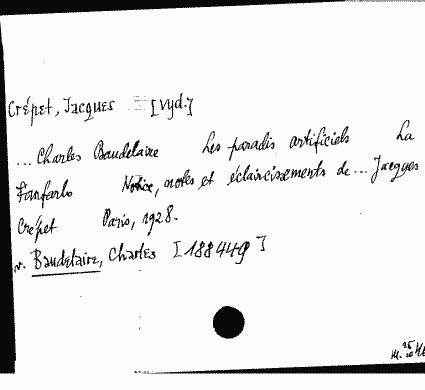 Crépet, Jacques [Vyd.]
... Charles Baudelaire Les paradis artificiels La
Fanfarlo Notice, notes et éclaircissements de ... Jacques
Crépet Paris, 1928.
v. Baudelaire, Charles [188449]